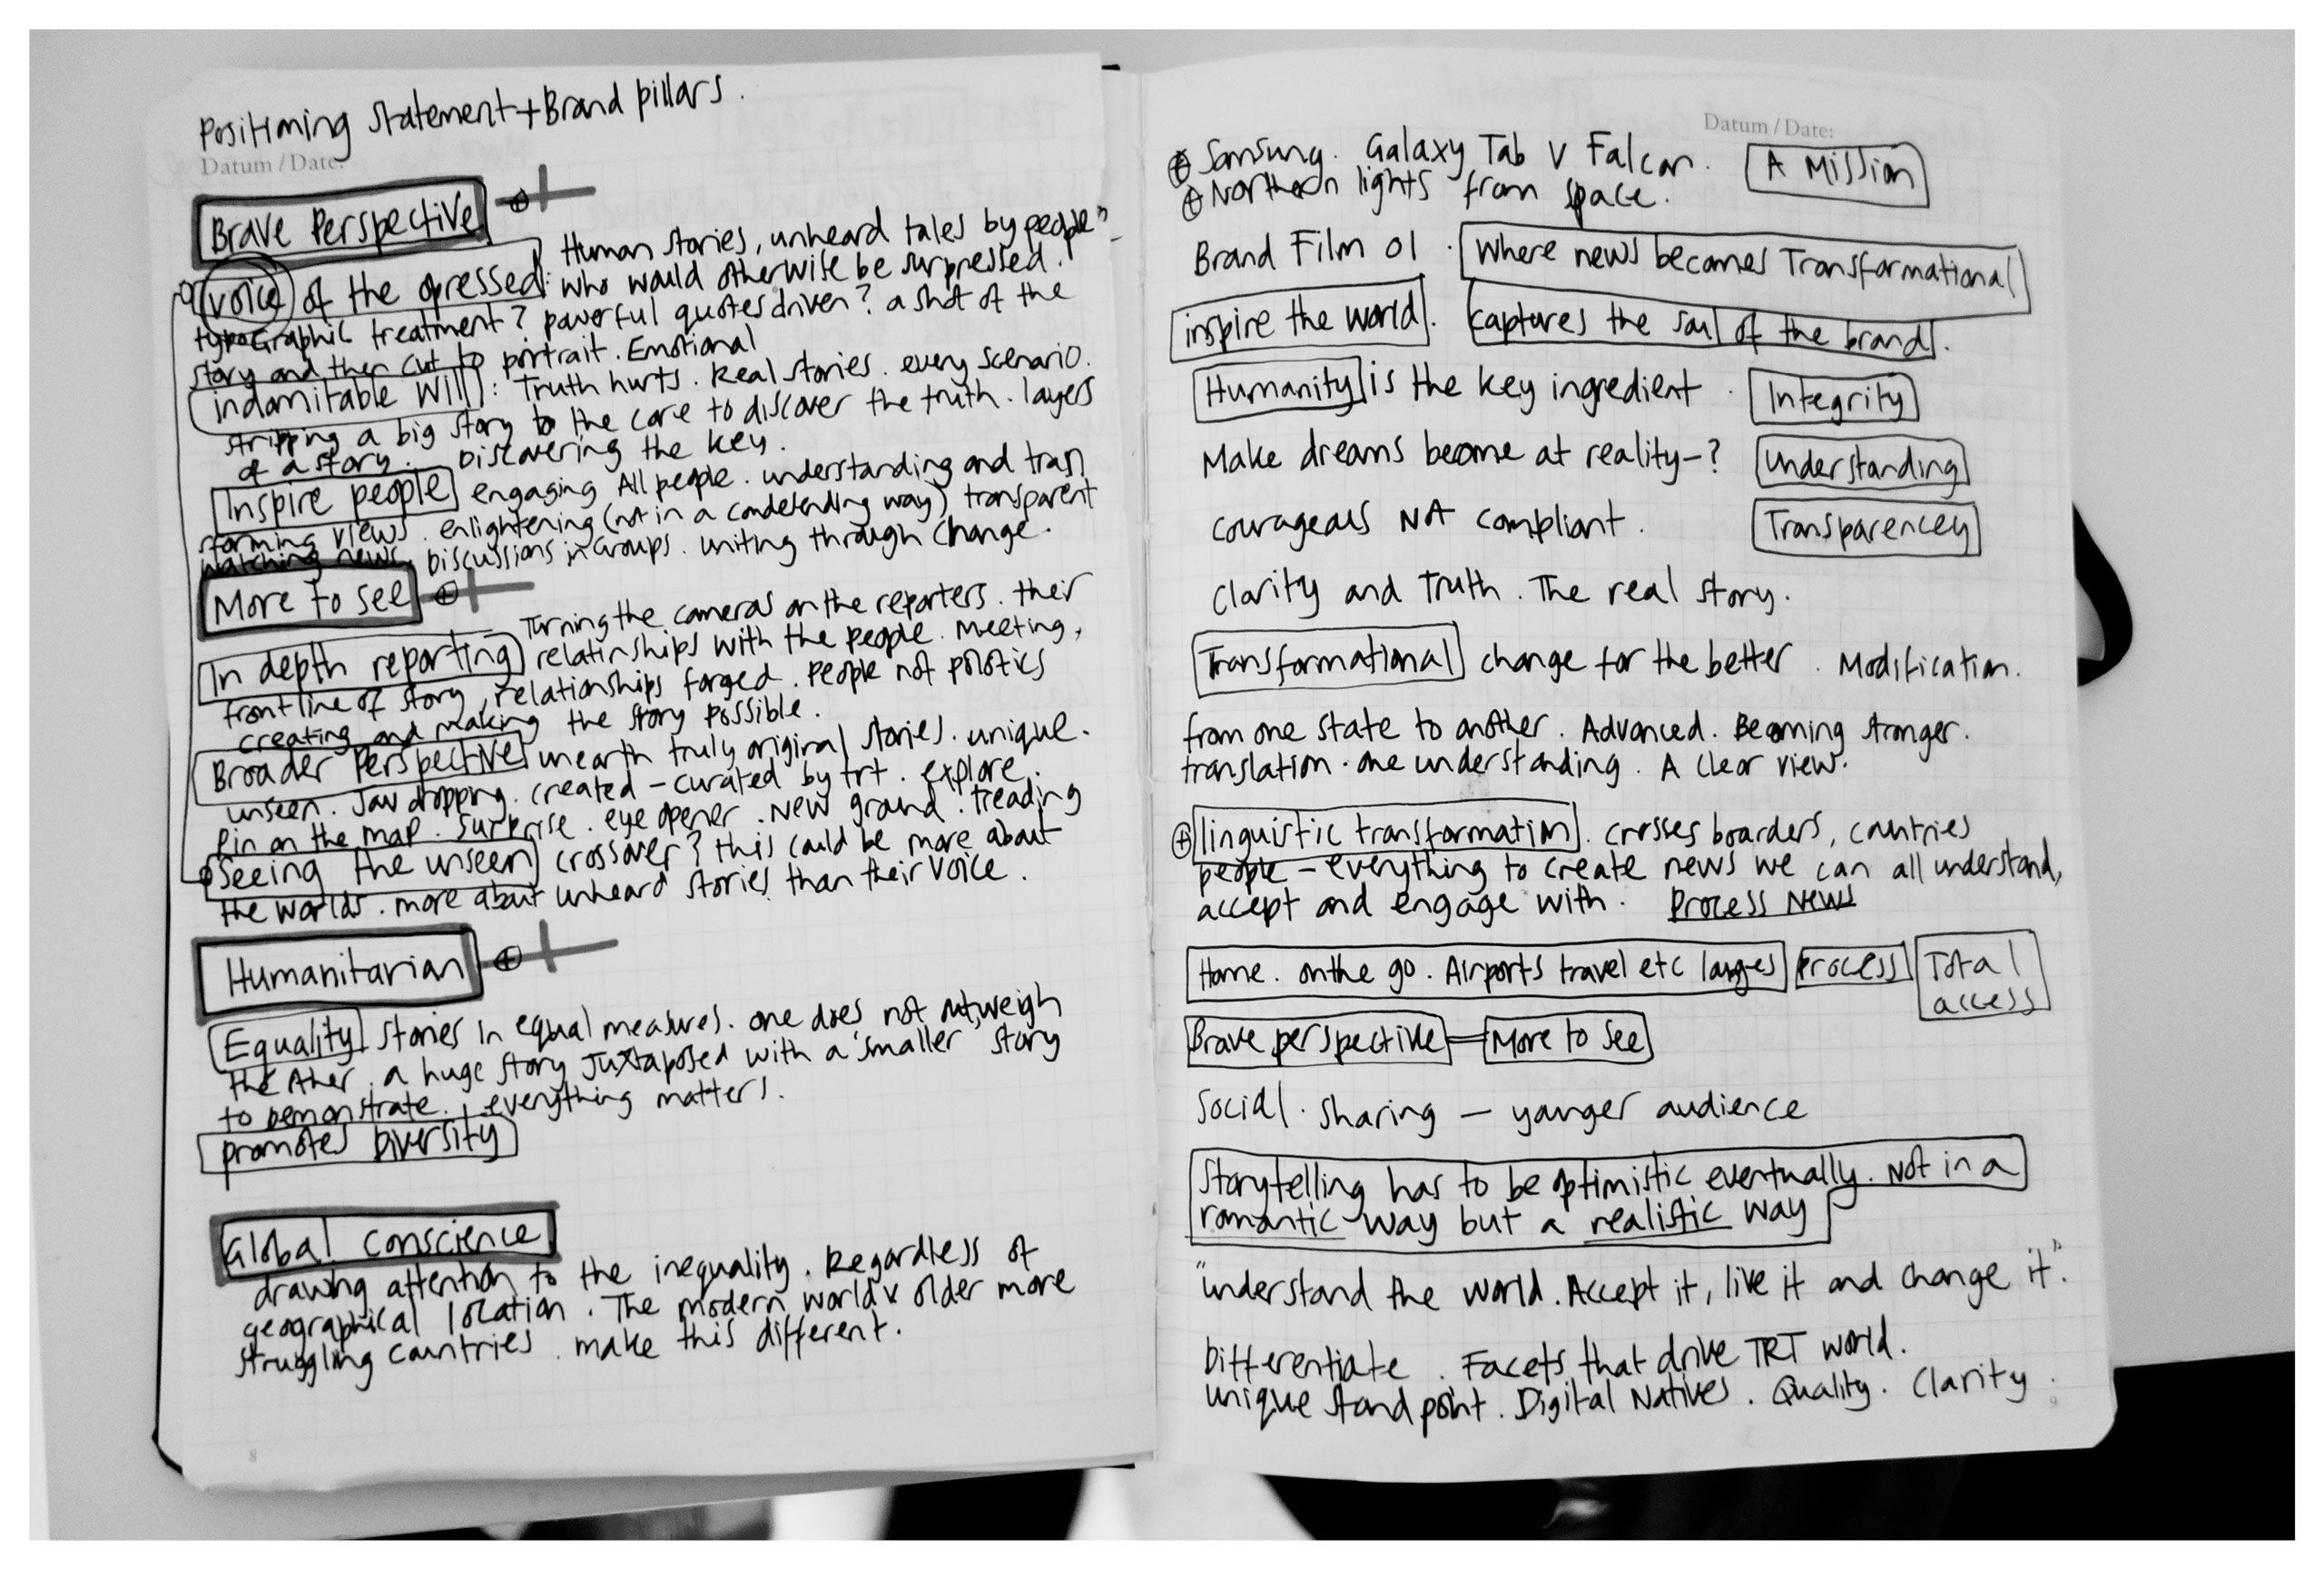 Positioning Statement + Brand pillars.
Datum / Date:
Brave Perspective
Human stories, unheard tales by people"
voice of the opressed: who would otherwise be surpressed.
typographic treatment? powerful quotes driven? a shot of the
story and then cut to portrait. Emotional
indomitable will: Truth hurts. Real stories. every scenario.
stripping a big story to the core to discover the truth. layers
of a story. Discovering the key.
Inspire people engaging All people. understanding and tran
sforming views. enlightening (not in a condetending way) transparent
watching news. Discussions in Groups. uniting through change.
More to see
Turning the cameras on the reporters. their
In depth reporting relatinships with the people. Meeting,
frontline of story, relationships forged. People not politics
creating and making the story possible.
Broader Perspective unearth truly original stories. unique.
unseen. Jaw dropping. created - curated by trt. explore.
Pin on the map. surprise. eye opener. New ground. treading
Seeing the unseen crossover? this could be more about
the worlds. more about unheard stories than their voice.
Humanitarian
Equality Stories in equal measures. one does not outweigh
the other. a huge story Juxtaposed with a smaller story
to Demonstrate. everything matters.
promotes Diversity
Global conscience
drawing attention to the inequality. Regardless of
geographical location. The modern world v older more
struggling countries. make this different.
8
Datum / Date:
Samsung. Galaxy Tab v Falcon. A Mission
Northern lights from space.
Brand Film 01. Where news becomes Transformational
inspire the world. captures the soul of the brand.
Humanity is the key ingredient. Integrity
Make dreams become at reality-? Understanding
courageous NOT compliant. Transparencey
Clarity and Truth. The real story.
Transformational change for the better. Modification.
from one state to another. Advanced. Becoming stronger.
translation. one understanding. A clear view.
linguistic transformation. crosses boarders, countries
people - everything to create news we can all understand,
accept and engage with. Process News
Home. on the go. Airports travel etc Process Total
access
Brave perspective = More to see
Social. sharing — younger audience
Storytelling has to be optimistic eventually. Not in a
romantic way but a realistic way
"understand the world. Accept it, live it and change it".
Differentiate. Facets that drive TRT world.
unique stand point. Digital Natives. Quality. Clarity.
9